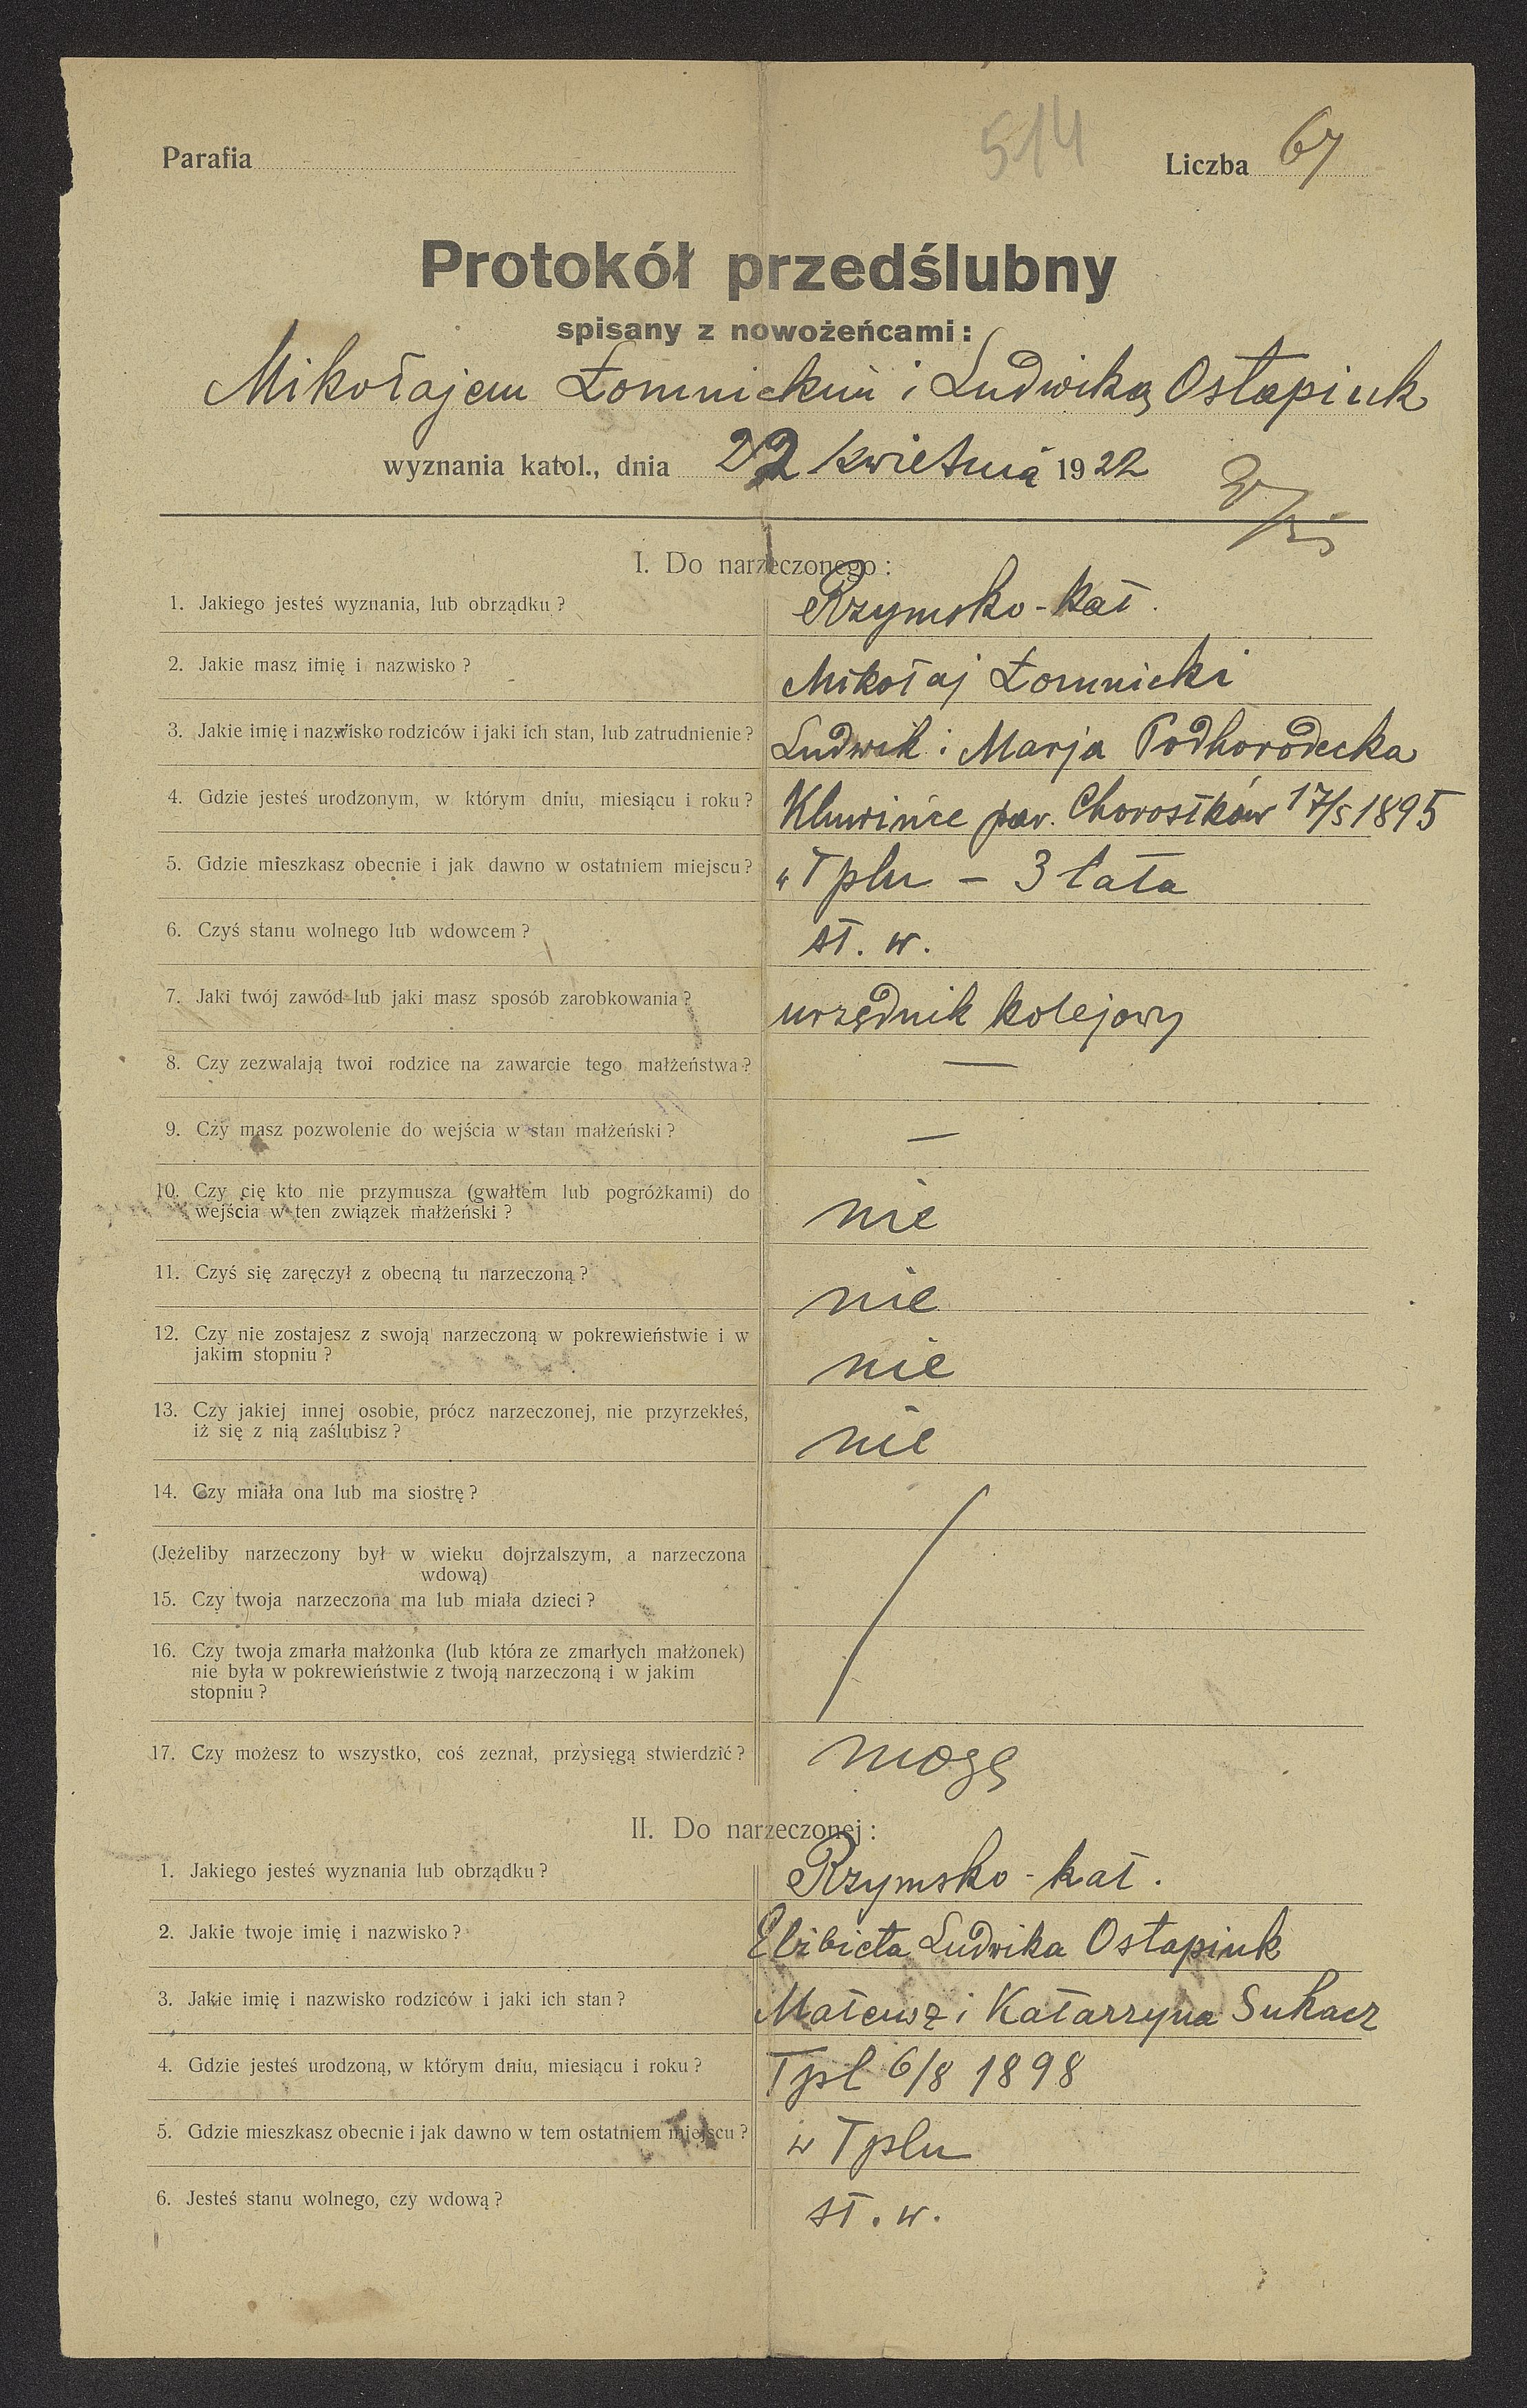 Parafia
514
Liczba 67
Protokół przedślubny
spisany z nowożeńcami:
Mikołajem Łomnickim i Ludwiką Ostapiuk
wyznania katol., dnia 22 kwietnia 1922
I. Do narzeczonego:
1. Jakiego jesteś wyznania, lub obrządku? Rzymsko-kat.
2. Jakie masz imię i nazwisko? Mikołaj Łomnicki
3. Jakie imię i nazwisko rodziców i jaki ich stan, lub zatrudnienie? Ludwik i Marja Podhorodecka
4. Gdzie jesteś urodzonym, w którym dniu, miesiącu i roku? Kluwińce pow. Chorostków 17/5 1895
5. Gdzie mieszkasz obecnie i jak dawno w ostatniem miejscu? w Tplu — 3 lata
6. Czyś stanu wolnego lub wdowcem? st. w.
7. Jaki twój zawód lub jaki masz sposób zarobkowania? urzędnik kolejowy
8. Czy zezwalają twoi rodzice na zawarcie tego małżeństwa? —
9. Czy masz pozwolenie do wejścia w stan małżeński? —
10. Czy cię kto nie przymusza (gwałtem lub pogróżkami) do
wejścia w ten związek małżeński? nie
11. Czyś się zaręczył z obecną tu narzeczoną? nie
12. Czy nie zostajesz z swoją narzeczoną w pokrewieństwie i w
jakim stopniu? nie
13. Czy jakiej innej osobie, prócz narzeczonej, nie przyrzekłeś,
iż się z nią zaślubisz? nie
14. Czy miała ona lub ma siostrę?
(Jeżeliby narzeczony był w wieku dojrzalszym, a narzeczona
wdową)
15. Czy twoja narzeczona ma lub miała dzieci?
16. Czy twoja zmarła małżonka (lub która ze zmarłych małżonek)
nie była w pokrewieństwie z twoją narzeczoną i w jakim
stopniu?
17. Czy możesz to wszystko, coś zeznał, przysięgą stwierdzić? mogę
II. Do narzeczonej:
1. Jakiego jesteś wyznania lub obrządku? Rzymsko-kat.
2. Jakie twoje imię i nazwisko? Elżbieta Ludwika Ostapiuk
3. Jakie imię i nazwisko rodziców i jaki ich stan? Mateusz i Katarzyna Sukacz
4. Gdzie jesteś urodzoną, w którym dniu, miesiącu i roku? Tpl 6/8 1898
5. Gdzie mieszkasz obecnie i jak dawno w tem ostatniem miejscu? w Tplu
6. Jesteś stanu wolnego, czy wdową? st. w.